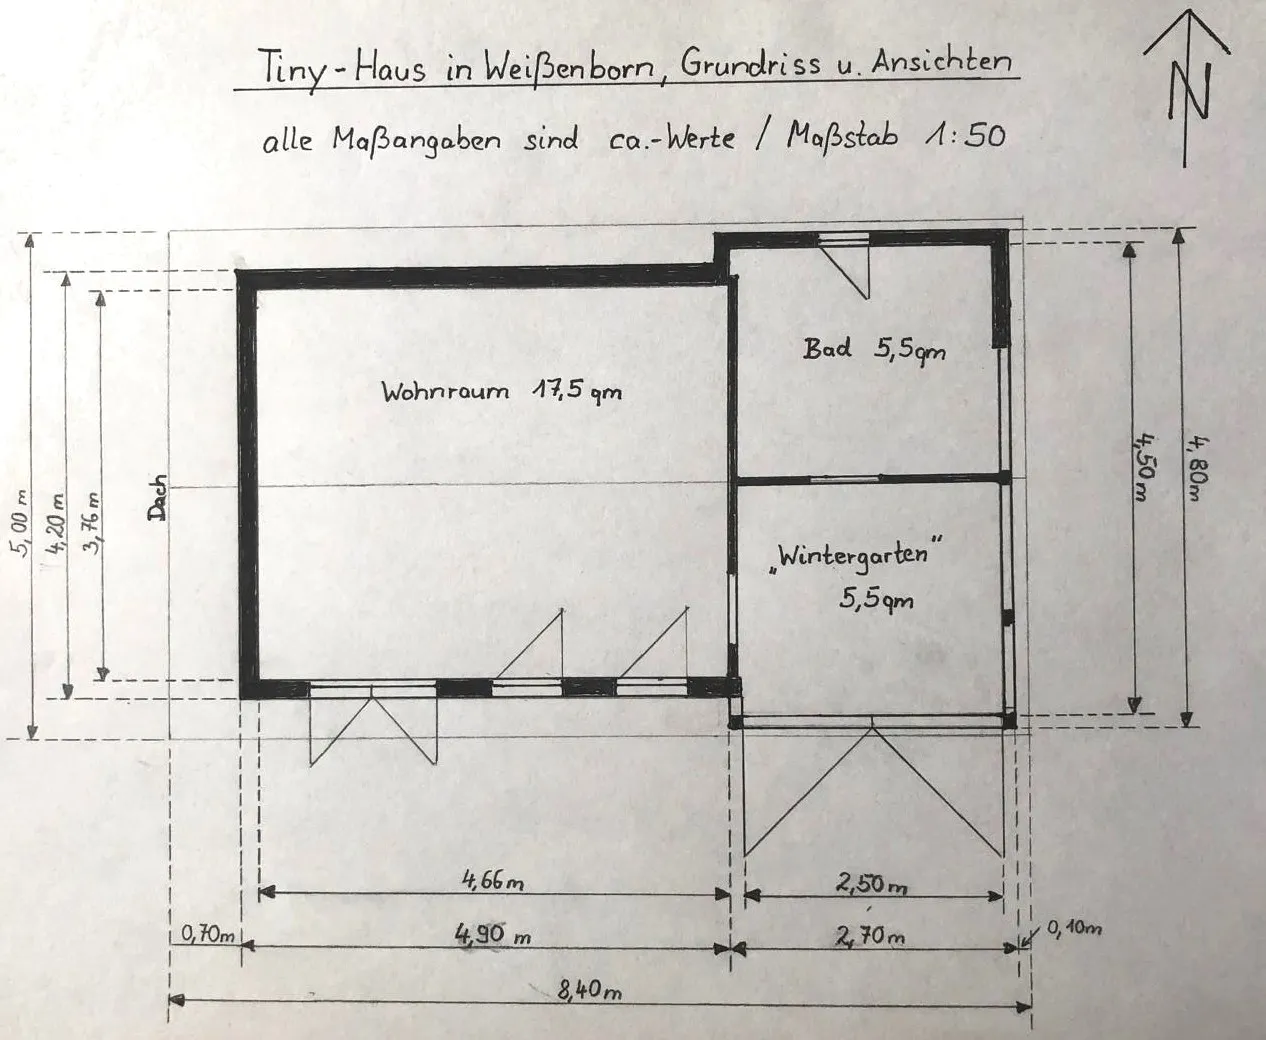 Tiny-Haus in Weißenborn, Grundriss u. Ansichten
alle Maßangaben sind ca.-Werte / Maßstab 1:50
N
Bad 5,5qm
Wohnraum 17,5 qm
„Wintergarten“
5,5qm
Dach
5,00 m
4,20 m
3,76 m
4,50m
4,80m
4,66m
2,50m
0,70m
4,90 m
2,70m
0,10m
8,40m